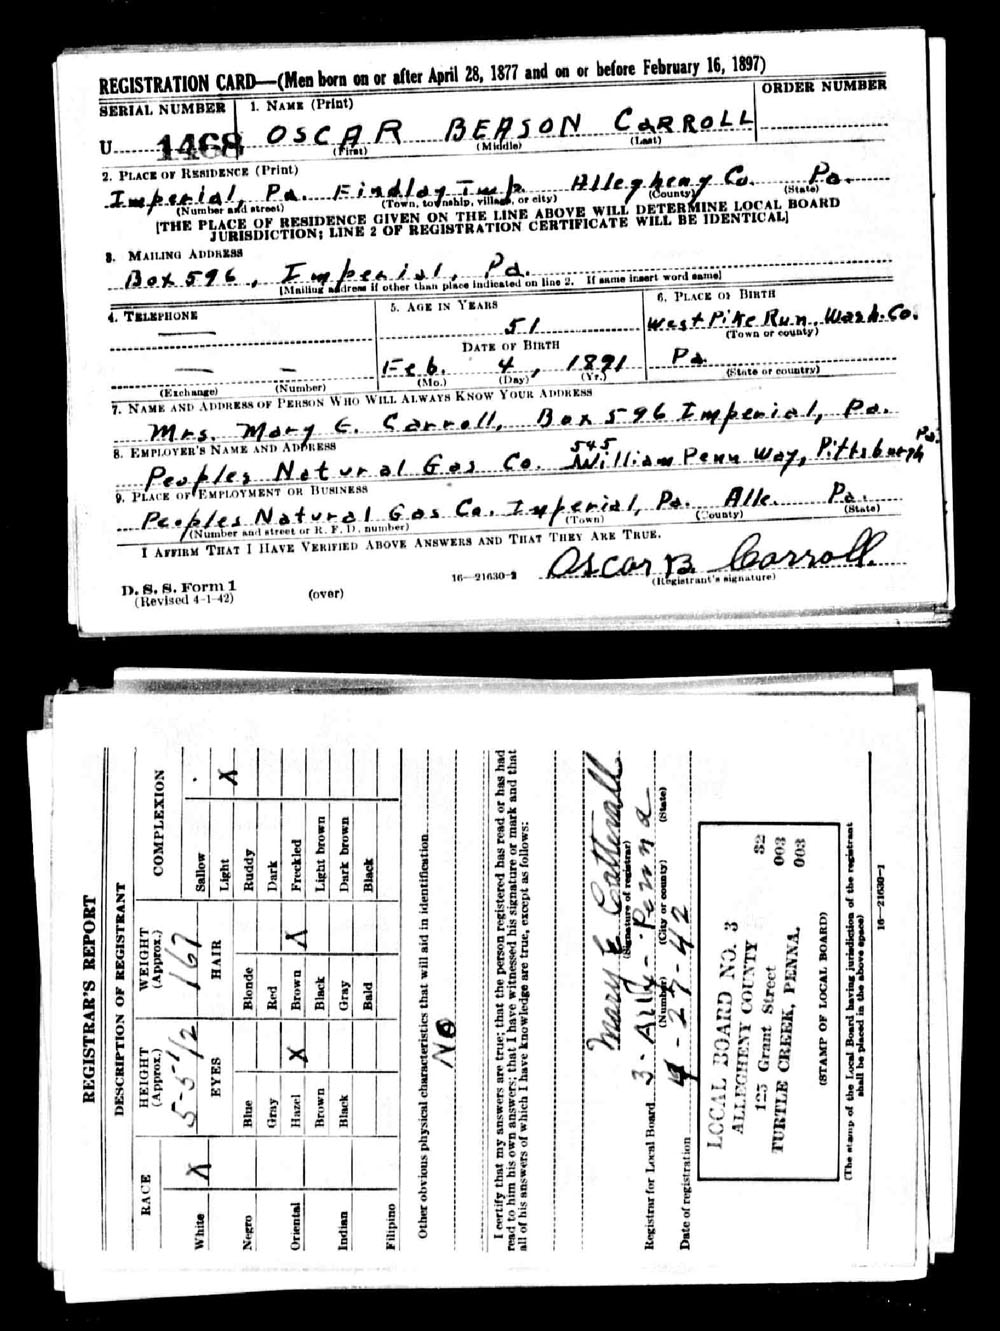 REGISTRATION CARD—(Men born on or after April 28, 1877 and on or before February 16, 1897)
SERIAL NUMBER 1. NAME (Print) ORDER NUMBER
U 1468 OSCAR BEASON CARROLL
(First) (Middle) (Last)
2. PLACE OF RESIDENCE (Print)
Imperial, Pa. Findlay Twp. Allegheny Co. Pa.
(Number and street) (Town, township, village, or city) (County) (State)
[THE PLACE OF RESIDENCE GIVEN ON THE LINE ABOVE WILL DETERMINE LOCAL BOARD
JURISDICTION; LINE 2 OF REGISTRATION CERTIFICATE WILL BE IDENTICAL]
3. MAILING ADDRESS
Box 596, Imperial, Pa.
[Mailing address if other than place indicated on line 2. If same insert word same]
4. TELEPHONE 5. AGE IN YEARS 6. PLACE OF BIRTH
51 West Pike Run, Wash. Co.
DATE OF BIRTH (Town or county)
Feb. 4, 1891 Pa.
(Exchange) (Number) (Mo.) (Day) (Yr.) (State or country)
7. NAME AND ADDRESS OF PERSON WHO WILL ALWAYS KNOW YOUR ADDRESS
Mrs. Mary E. Carroll, Box 596 Imperial, Pa.
8. EMPLOYER'S NAME AND ADDRESS
Peoples Natural Gas Co. 545 William Penn Way, Pittsburgh Pa.
9. PLACE OF EMPLOYMENT OR BUSINESS
Peoples Natural Gas Co. Imperial, Pa. Alle. Pa.
(Number and street or R. F. D. number) (Town) (County) (State)
I AFFIRM THAT I HAVE VERIFIED ABOVE ANSWERS AND THAT THEY ARE TRUE.
Oscar B. Carroll.
D. S. S. Form 1 16—21630-2 (Registrant's signature)
(Revised 4-1-42) (over)
REGISTRAR'S REPORT
DESCRIPTION OF REGISTRANT
RACE HEIGHT (Approx.) WEIGHT (Approx.) COMPLEXION
5-5 1/2 167
White X EYES HAIR Sallow
Light X
Negro Blue Blonde Ruddy
Gray Red Dark
Oriental Hazel X Brown X Freckled
Brown Black Light brown
Indian Black Gray Dark brown
Bald Black
Filipino
Other obvious physical characteristics that will aid in identification
NO
I certify that my answers are true; that the person registered has read or has had
read to him his own answers; that I have witnessed his signature or mark and that
all of his answers of which I have knowledge are true, except as follows:
Mary E
(Signature of registrar)
Registrar for Local Board 3 - Ally - Penna
(Number) (City or county) (State)
Date of registration 4-27-42
LOCAL BOARD NO. 3 32
ALLEGHENY COUNTY 003
125 Grant Street 003
TURTLE CREEK, PENNA.
(STAMP OF LOCAL BOARD)
(The stamp of the Local Board having jurisdiction of the registrant
shall be placed in the above space)
16—21630-1